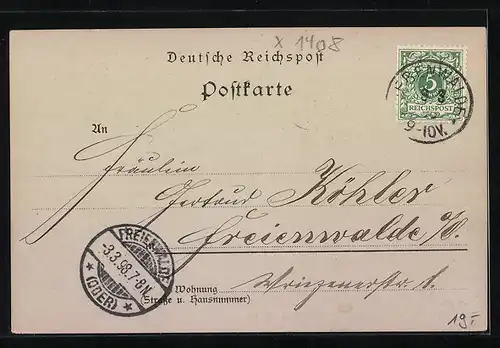 x 1408
Deutsche Reichspost
Postkarte
5
REICHSPOST
9-10V.
An
Fräulein
Gertrud Köhler
Freienwalde a/O.
FREIENWALDE
-3.3.98.7-8N.
* (ODER) *
Wohnung
(Straße u. Hausnummer)
Wriezenerstr. 1
19.-